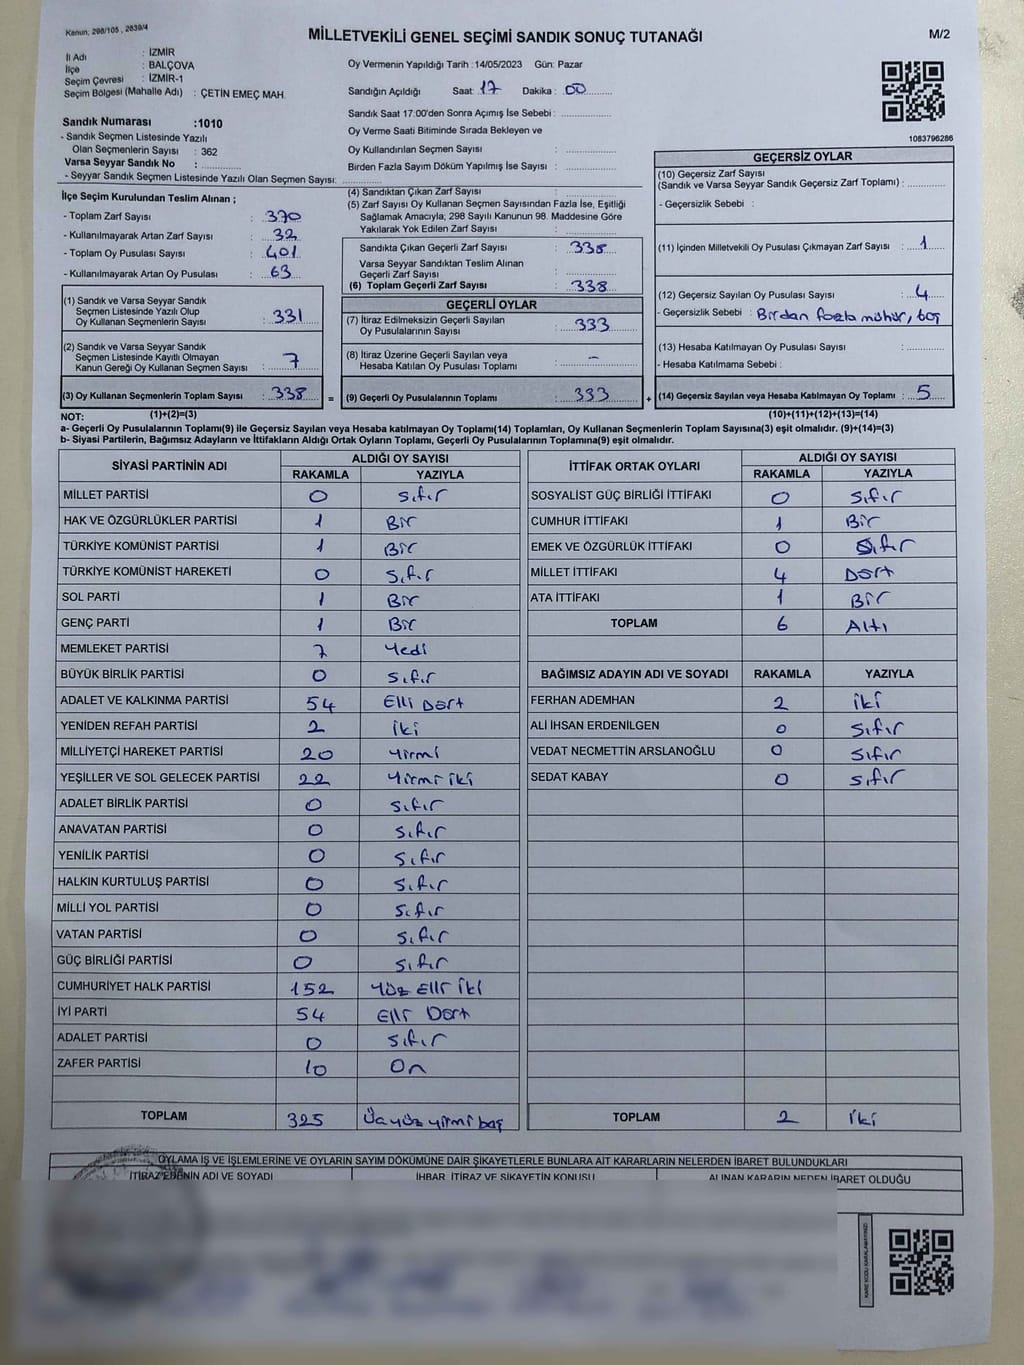 Kanun, 298/105 , 2839/4
MİLLETVEKİLİ GENEL SEÇİMİ SANDIK SONUÇ TUTANAĞI
M/2
İl Adı : İZMİR
İlçe : BALÇOVA
Seçim Çevresi : İZMİR-1
Seçim Bölgesi (Mahalle Adı) : ÇETİN EMEÇ MAH.
Oy Vermenin Yapıldığı Tarih :14/05/2023 Gün: Pazar
Sandığın Açıldığı Saat: 17 Dakika : 00
Sandık Saat 17:00'den Sonra Açımış İse Sebebi :
Oy Verme Saati Bitiminde Sırada Bekleyen ve
Oy Kullandırılan Seçmen Sayısı :
Birden Fazla Sayım Döküm Yapılmış İse Sayısı :
1083796286
Sandık Numarası :1010
- Sandık Seçmen Listesinde Yazılı
Olan Seçmenlerin Sayısı : 362
Varsa Seyyar Sandık No :
- Seyyar Sandık Seçmen Listesinde Yazılı Olan Seçmen Sayısı:
İlçe Seçim Kurulundan Teslim Alınan ;
- Toplam Zarf Sayısı : 370
- Kullanılmayarak Artan Zarf Sayısı : 32
- Toplam Oy Pusulası Sayısı : 401
- Kullanılmayarak Artan Oy Pusulası : 63
(1) Sandık ve Varsa Seyyar Sandık
Seçmen Listesinde Yazılı Olup
Oy Kullanan Seçmenlerin Sayısı : 331
(2) Sandık ve Varsa Seyyar Sandık
Seçmen Listesinde Kayıtlı Olmayan
Kanun Gereği Oy Kullanan Seçmen Sayısı : 7
(3) Oy Kullanan Seçmenlerin Toplam Sayısı : 338 =
(4) Sandıktan Çıkan Zarf Sayısı :
(5) Zarf Sayısı Oy Kullanan Seçmen Sayısından Fazla İse, Eşitliği
Sağlamak Amacıyla; 298 Sayılı Kanunun 98. Maddesine Göre
Yakılarak Yok Edilen Zarf Sayısı :
Sandıkta Çıkan Geçerli Zarf Sayısı : 338
Varsa Seyyar Sandıktan Teslim Alınan
Geçerli Zarf Sayısı :
(6) Toplam Geçerli Zarf Sayısı : 338
GEÇERLİ OYLAR
(7) İtiraz Edilmeksizin Geçerli Sayılan
Oy Pusulalarının Sayısı : 333
(8) İtiraz Üzerine Geçerli Sayılan veya
Hesaba Katılan Oy Pusulası Toplamı : –
(9) Geçerli Oy Pusulalarının Toplamı : 333 +
GEÇERSİZ OYLAR
(10) Geçersiz Zarf Sayısı
(Sandık ve Varsa Seyyar Sandık Geçersiz Zarf Toplamı) :
- Geçersizlik Sebebi :
(11) İçinden Milletvekili Oy Pusulası Çıkmayan Zarf Sayısı : 1
(12) Geçersiz Sayılan Oy Pusulası Sayısı : 4
- Geçersizlik Sebebi : Birdan fazla mühür, boş
(13) Hesaba Katılmayan Oy Pusulası Sayısı :
- Hesaba Katılmama Sebebi :
(14) Geçersiz Sayılan veya Hesaba Katılmayan Oy Toplamı : 5
NOT: (1)+(2)=(3) (10)+(11)+(12)+(13)=(14)
a- Geçerli Oy Pusulalarının Toplamı(9) ile Geçersiz Sayılan veya Hesaba katılmayan Oy Toplamı(14) Toplamları, Oy Kullanan Seçmenlerin Toplam Sayısına(3) eşit olmalıdır. (9)+(14)=(3)
b- Siyasi Partilerin, Bağımsız Adayların ve İttifakların Aldığı Ortak Oyların Toplamı, Geçerli Oy Pusulalarının Toplamına(9) eşit olmalıdır.
SİYASİ PARTİNİN ADI ALDIĞI OY SAYISI
RAKAMLA YAZIYLA
MİLLET PARTİSİ 0 Sıfır
HAK VE ÖZGÜRLÜKLER PARTİSİ 1 Bir
TÜRKİYE KOMÜNİST PARTİSİ 1 Bir
TÜRKİYE KOMÜNİST HAREKETİ 0 Sıfır
SOL PARTİ 1 Bir
GENÇ PARTİ 1 Bir
MEMLEKET PARTİSİ 7 Yedi
BÜYÜK BİRLİK PARTİSİ 0 Sıfır
ADALET VE KALKINMA PARTİSİ 54 Elli Dört
YENİDEN REFAH PARTİSİ 2 İki
MİLLİYETÇİ HAREKET PARTİSİ 20 Yirmi
YEŞİLLER VE SOL GELECEK PARTİSİ 22 Yirmi iki
ADALET BİRLİK PARTİSİ 0 Sıfır
ANAVATAN PARTİSİ 0 Sıfır
YENİLİK PARTİSİ 0 Sıfır
HALKIN KURTULUŞ PARTİSİ 0 Sıfır
MİLLİ YOL PARTİSİ 0 Sıfır
VATAN PARTİSİ 0 Sıfır
GÜÇ BİRLİĞİ PARTİSİ 0 Sıfır
CUMHURİYET HALK PARTİSİ 152 Yüz Elli İki
İYİ PARTİ 54 Elli Dört
ADALET PARTİSİ 0 Sıfır
ZAFER PARTİSİ 10 On
TOPLAM 325 Üçyüz yirmi beş
İTTİFAK ORTAK OYLARI ALDIĞI OY SAYISI
RAKAMLA YAZIYLA
SOSYALİST GÜÇ BİRLİĞİ İTTİFAKI 0 Sıfır
CUMHUR İTTİFAKI 1 Bir
EMEK VE ÖZGÜRLÜK İTTİFAKI 0 Sıfır
MİLLET İTTİFAKI 4 Dört
ATA İTTİFAKI 1 Bir
TOPLAM 6 Altı
BAĞIMSIZ ADAYIN ADI VE SOYADI RAKAMLA YAZIYLA
FERHAN ADEMHAN 2 İki
ALİ İHSAN ERDENİLGEN 0 Sıfır
VEDAT NECMETTİN ARSLANOĞLU 0 Sıfır
SEDAT KABAY 0 Sıfır
TOPLAM 2 İki
OYLAMA İŞ VE İŞLEMLERİNE VE OYLARIN SAYIM DÖKÜMÜNE DAİR ŞİKAYETLERLE BUNLARA AİT KARARLARIN NELERDEN İBARET BULUNDUKLARI
İTİRAZ EDENİN ADI VE SOYADI İHBAR, İTİRAZ VE ŞİKAYETİN KONUSU ALINAN KARARIN NEDEN İBARET OLDUĞU
KARE KODU KARALAMAYINIZ!